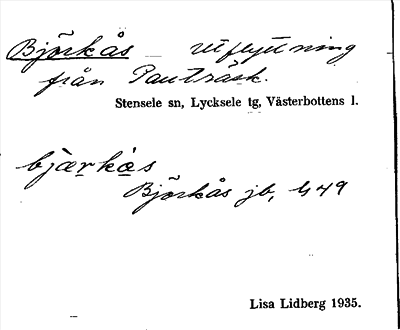 Björkås — utflyttning
från Pauträsk.
Stensele sn, Lycksele tg, Västerbottens l.
bjærkås
Björkås jb, 449
Lisa Lidberg 1935.